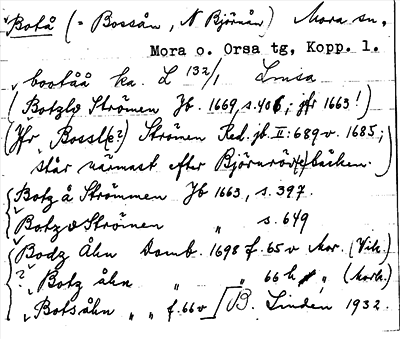 Botå (= Bossån, N Björnån) Mora sn.
Mora o. Orsa tg. Kopp. l.
bootåå ka. L 132/1 Lmsa
(Botzlo Strömen Jb. 1669, s. 406; jfr 1663!)
(Jfr Bossl(e?) Strömen Red. jb II: 689 v. 1685;
står närmast efter Björnrör(e)bäcken.)
Botz å Strömmen Jb 1663, s. 397.
Botz o Strömen " s. 649
Bodz Åhn Domb. 1698 f. 65 v Mor. (Vik.)
? Botz åhn " " 66 h " (Mork.)
" Botsåhn " " f. 66 v B. Lindén 1932.